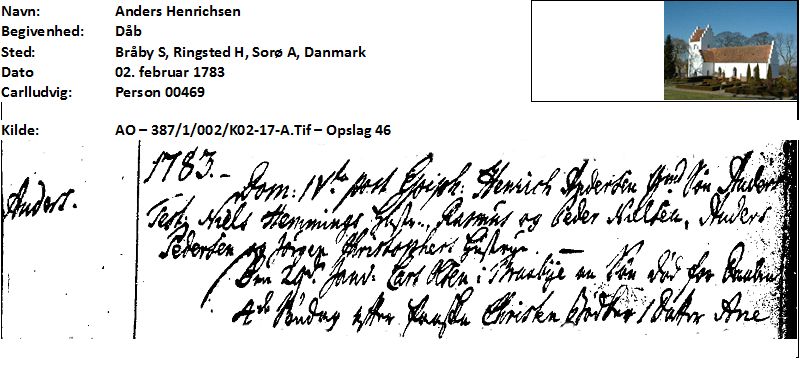 Navn: Anders Henrichsen
Begivenhed: Dåb
Sted: Bråby S, Ringsted H, Sorø A, Danmark
Dato 02. februar 1783
Carlludvig: Person 00469
Kilde: AO – 387/1/002/K02-17-A.Tif – Opslag 46
1783.
Anders.
Dom: IVta post Epiph: Henrich Andersen Søn Anders
Test: Niels Hemmings Hustr., Rasmus og Peder Nielsen, Anders
Pedersen og Jørgen Christophers Hustrue
Carl Olsen i Braabye en Søn død for
4de Søndag efter Paaske Datter Ane